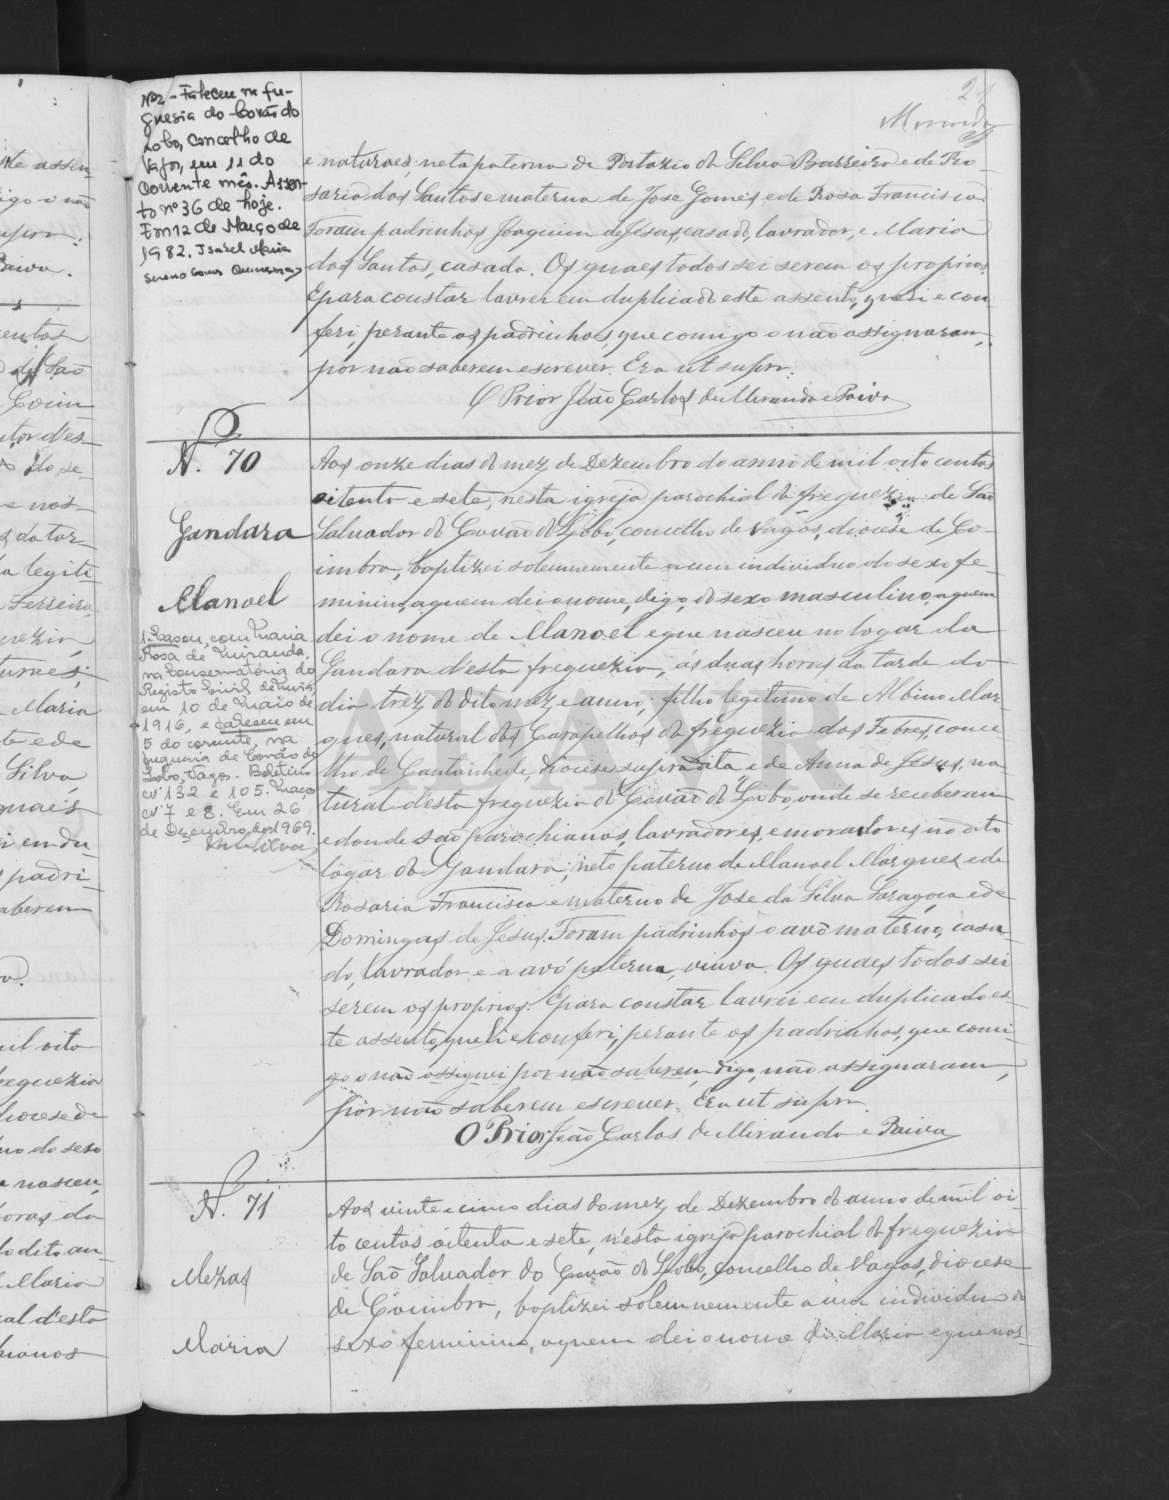 Nº2 - Faleceu na fre-
guesia do Covão do
Lobo, Concelho de
Vagos, em 11 do
Corrente mês. Assen-
to nº 36 de hoje.
Em 12 de Março de
1982. Isabel Maria
24
Miranda
e naturaes; neta paterna de da Silva Barreira e de Ro-
saria dos Santos e materna de Jose Gomes, e de Rosa Francisca.
Foram padrinhos Joaquim de Jesus, casado, lavrador, e Maria
dos Santos, casada. Os quaes todos sei serem os proprios.
E para constar lavrei em duplicado este assento, que li e con-
feri, perante os padrinhos, que comigo o não assignaram,
por não saberem escrever. Era ut supra.
O Prior João Carlos de Miranda e Paiva
N. 70
Gandara
Manoel
1. Casou com Maria
Rosa de Miranda,
na Conservatória do
Registo Civil de
em 10 de Maio de
1916, e faleceu em
5 do corrente, na
freguesia de Covão do
Lobo, Vagos. Boletins
nº 132 e 105. Maços
nº 7 e 8. Em 26
de Dezembro de 1969.
Silva
Aos onze dias do mez de Dezembro do anno de mil oito centos
oitenta e sete, nesta igreja parochial da freguezia de São
Salvador do Covão do Lobo, concelho de Vagos, diocese de Co-
imbra, baptizei solemnemente a um individuo do sexo fe-
minino, a quem dei o nome, digo, do sexo masculino, a quem
dei o nome de Manoel e que nasceu no logar da
Gandara d'esta freguezia, ás duas horas da tarde do
dia trez do dito mez e anno; filho legitimo de Albino Mar-
ques, natural dos Carapelhos da freguezia das Febres, conce-
lho de Cantanhede, diocese supradita e de Anna de Jesus, na-
tural d'esta freguezia do Covão do Lobo, onde se receberam
e donde são parochianos, lavradores, e moradores no dito
logar da Gandara; neto paterno de Manoel Marques e de
Rosaria Francisca e materno de Jose da Silva Saragoça e de
Domingas de Jesus. Foram padrinhos o avô materno, casa-
do, lavrador e a avó paterna, viuva. Os quaes todos sei
serem os proprios. E para constar lavrei em duplicado es-
te assento, que li e conferi, perante os padrinhos, que comi-
go o não assignei por não saberem, digo, não assignaram,
por não saberem escrever. Era ut supra.
O Prior João Carlos de Miranda e Paiva
N. 71
Mezas
Maria
Aos vinte e cinco dias do mez de Dezembro do anno de mil oi-
to centos oitenta e sete, n'esta igreja parochial da freguezia
de São Salvador do Covão do Lobo, concelho de Vagos, diocese
de Coimbra, baptizei solemnemente a um individuo do
sexo feminino, a quem dei o nome de Maria e que nas-
ADAVR